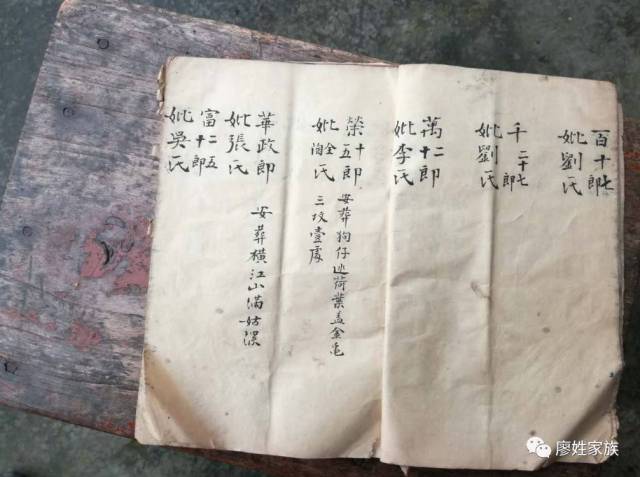 百十七郎
妣劉氏
千二十七郎
妣劉氏
萬十二郎
妣李氏
榮十五郎
妣全陶氏
安葬狗仔迯荷葉盖金龟
三坟壹處
華政郎
妣張氏
安葬橫江山滿姑
富二十五郎
妣吳氏
廖姓家族